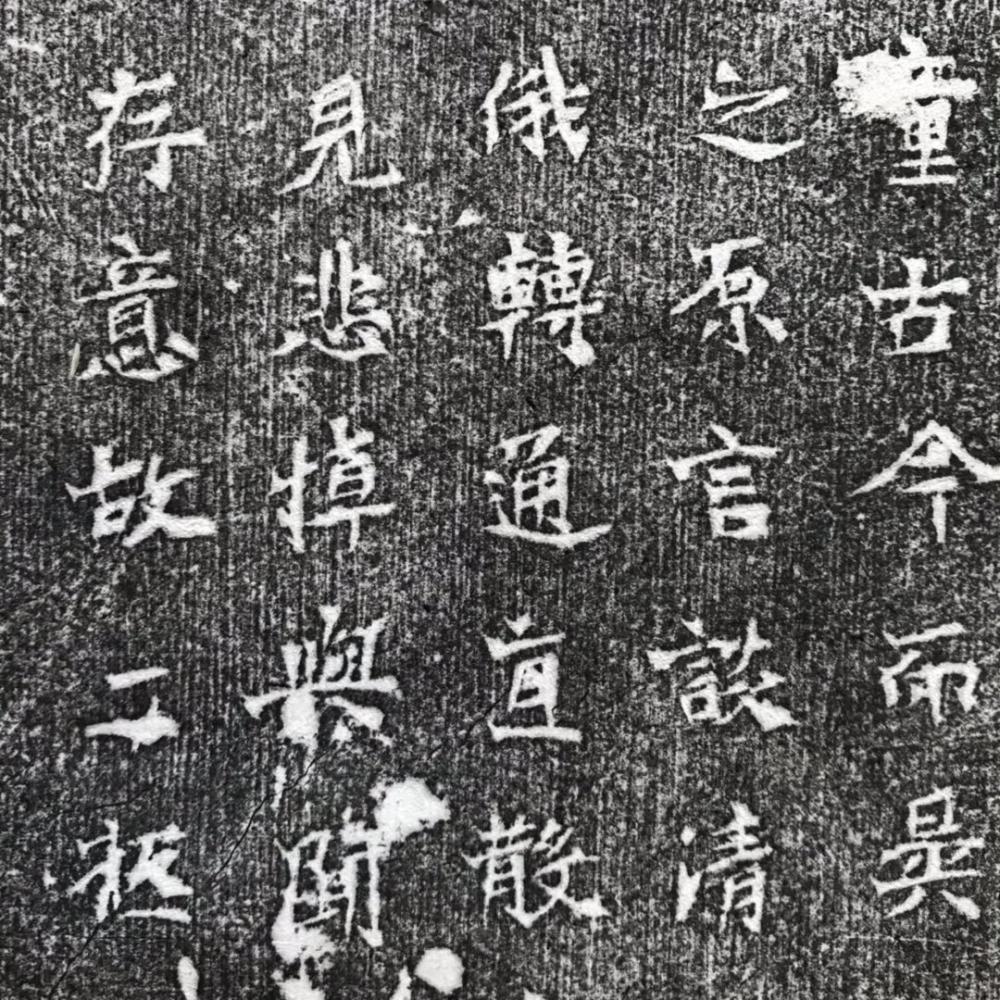 童古今而
之原言談清
俄轉通直散
見悲悼與
存意故二極